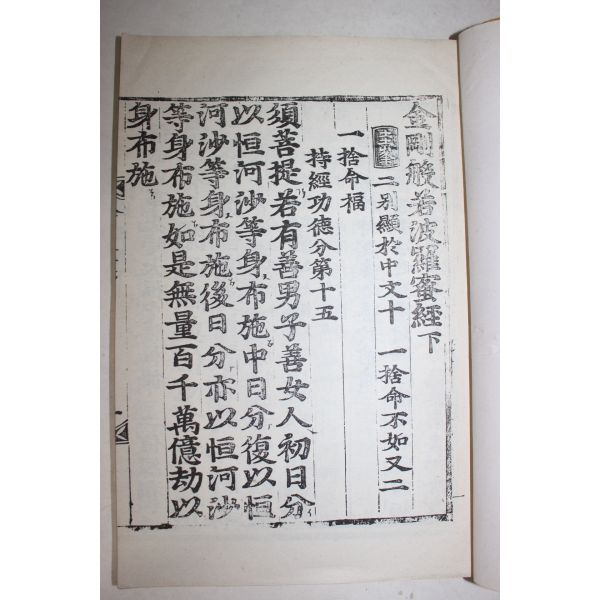 金剛般若波羅蜜經下
二別顯於中文十 一捨命不如又二
一捨命福
持經功德分第十五
須菩提若有善男子善女人初日分
以恒河沙等身布施中日分復以恒
河沙等身布施後日分亦以恒河沙
等身布施如是無量百千萬億劫以
身布施